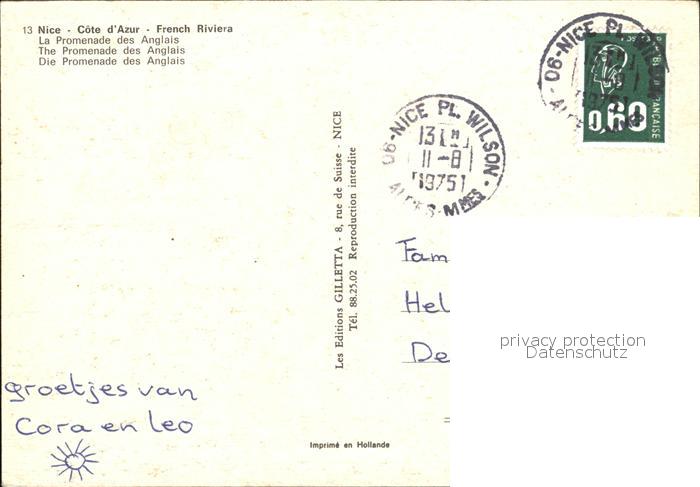 13 Nice - Côte d'Azur - French Riviera
La Promenade des Anglais
The Promenade des Anglais
Die Promenade des Anglais
06-NICE PL. WILSON
0,60
FRANÇAISE
06-NICE PL. WILSON
13H
11-8
1975
ALPES-MMES
Les Editions GILLETTA - 8, rue de Suisse - NICE
Tél. 88.25.02 Reproduction interdite
Fam
Hel
De
privacy protection
Datenschutz
groetjes van
Cora en Leo
Imprimé en Hollande